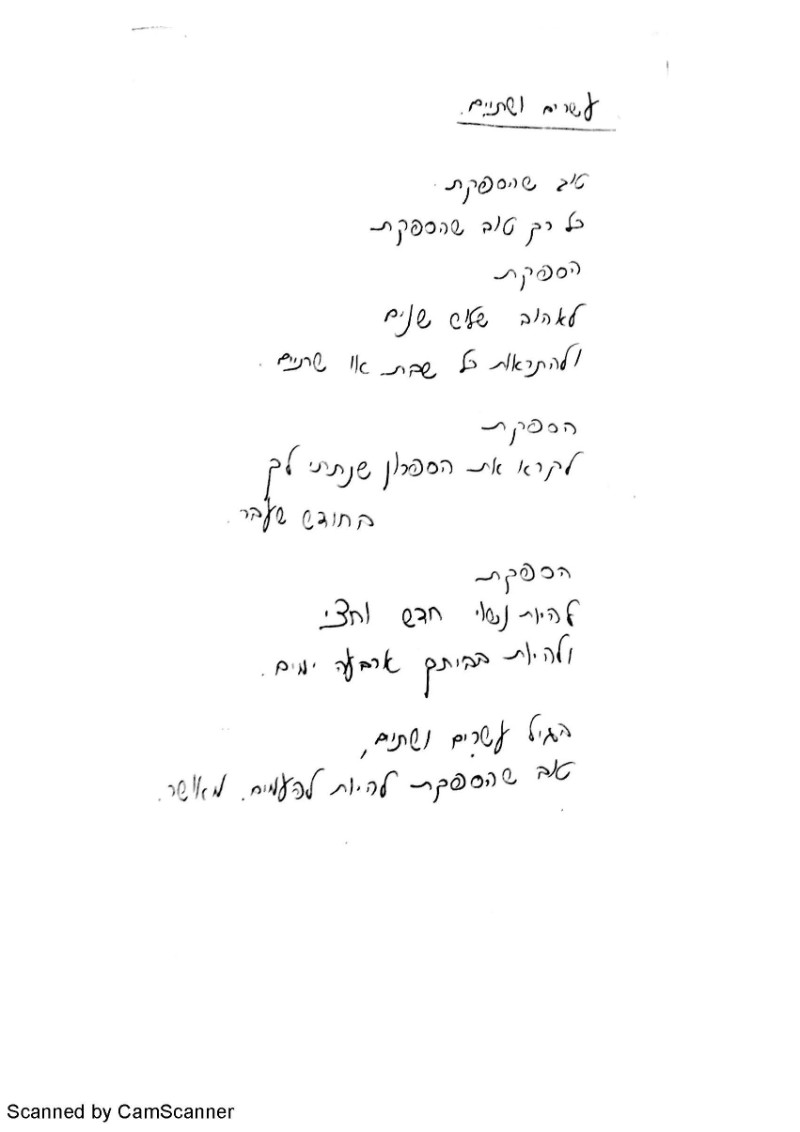 עשרים ושתיים.
טוב שהספקת.
כל כך טוב שהספקת
הספקת
לאהוב שלוש שנים
ולהתראות כל שבת או שתיים.
הספקת
לקרא את הספרון שנתתי לך
בחודש שעבר.
הספקת
להיות נשוי חדש וחצי
ולהיות בביתך ארבעה ימים.
בגיל עשרים ושתים,
טוב שהספקת להיות לפעמים. מאושר.
Scanned by CamScanner